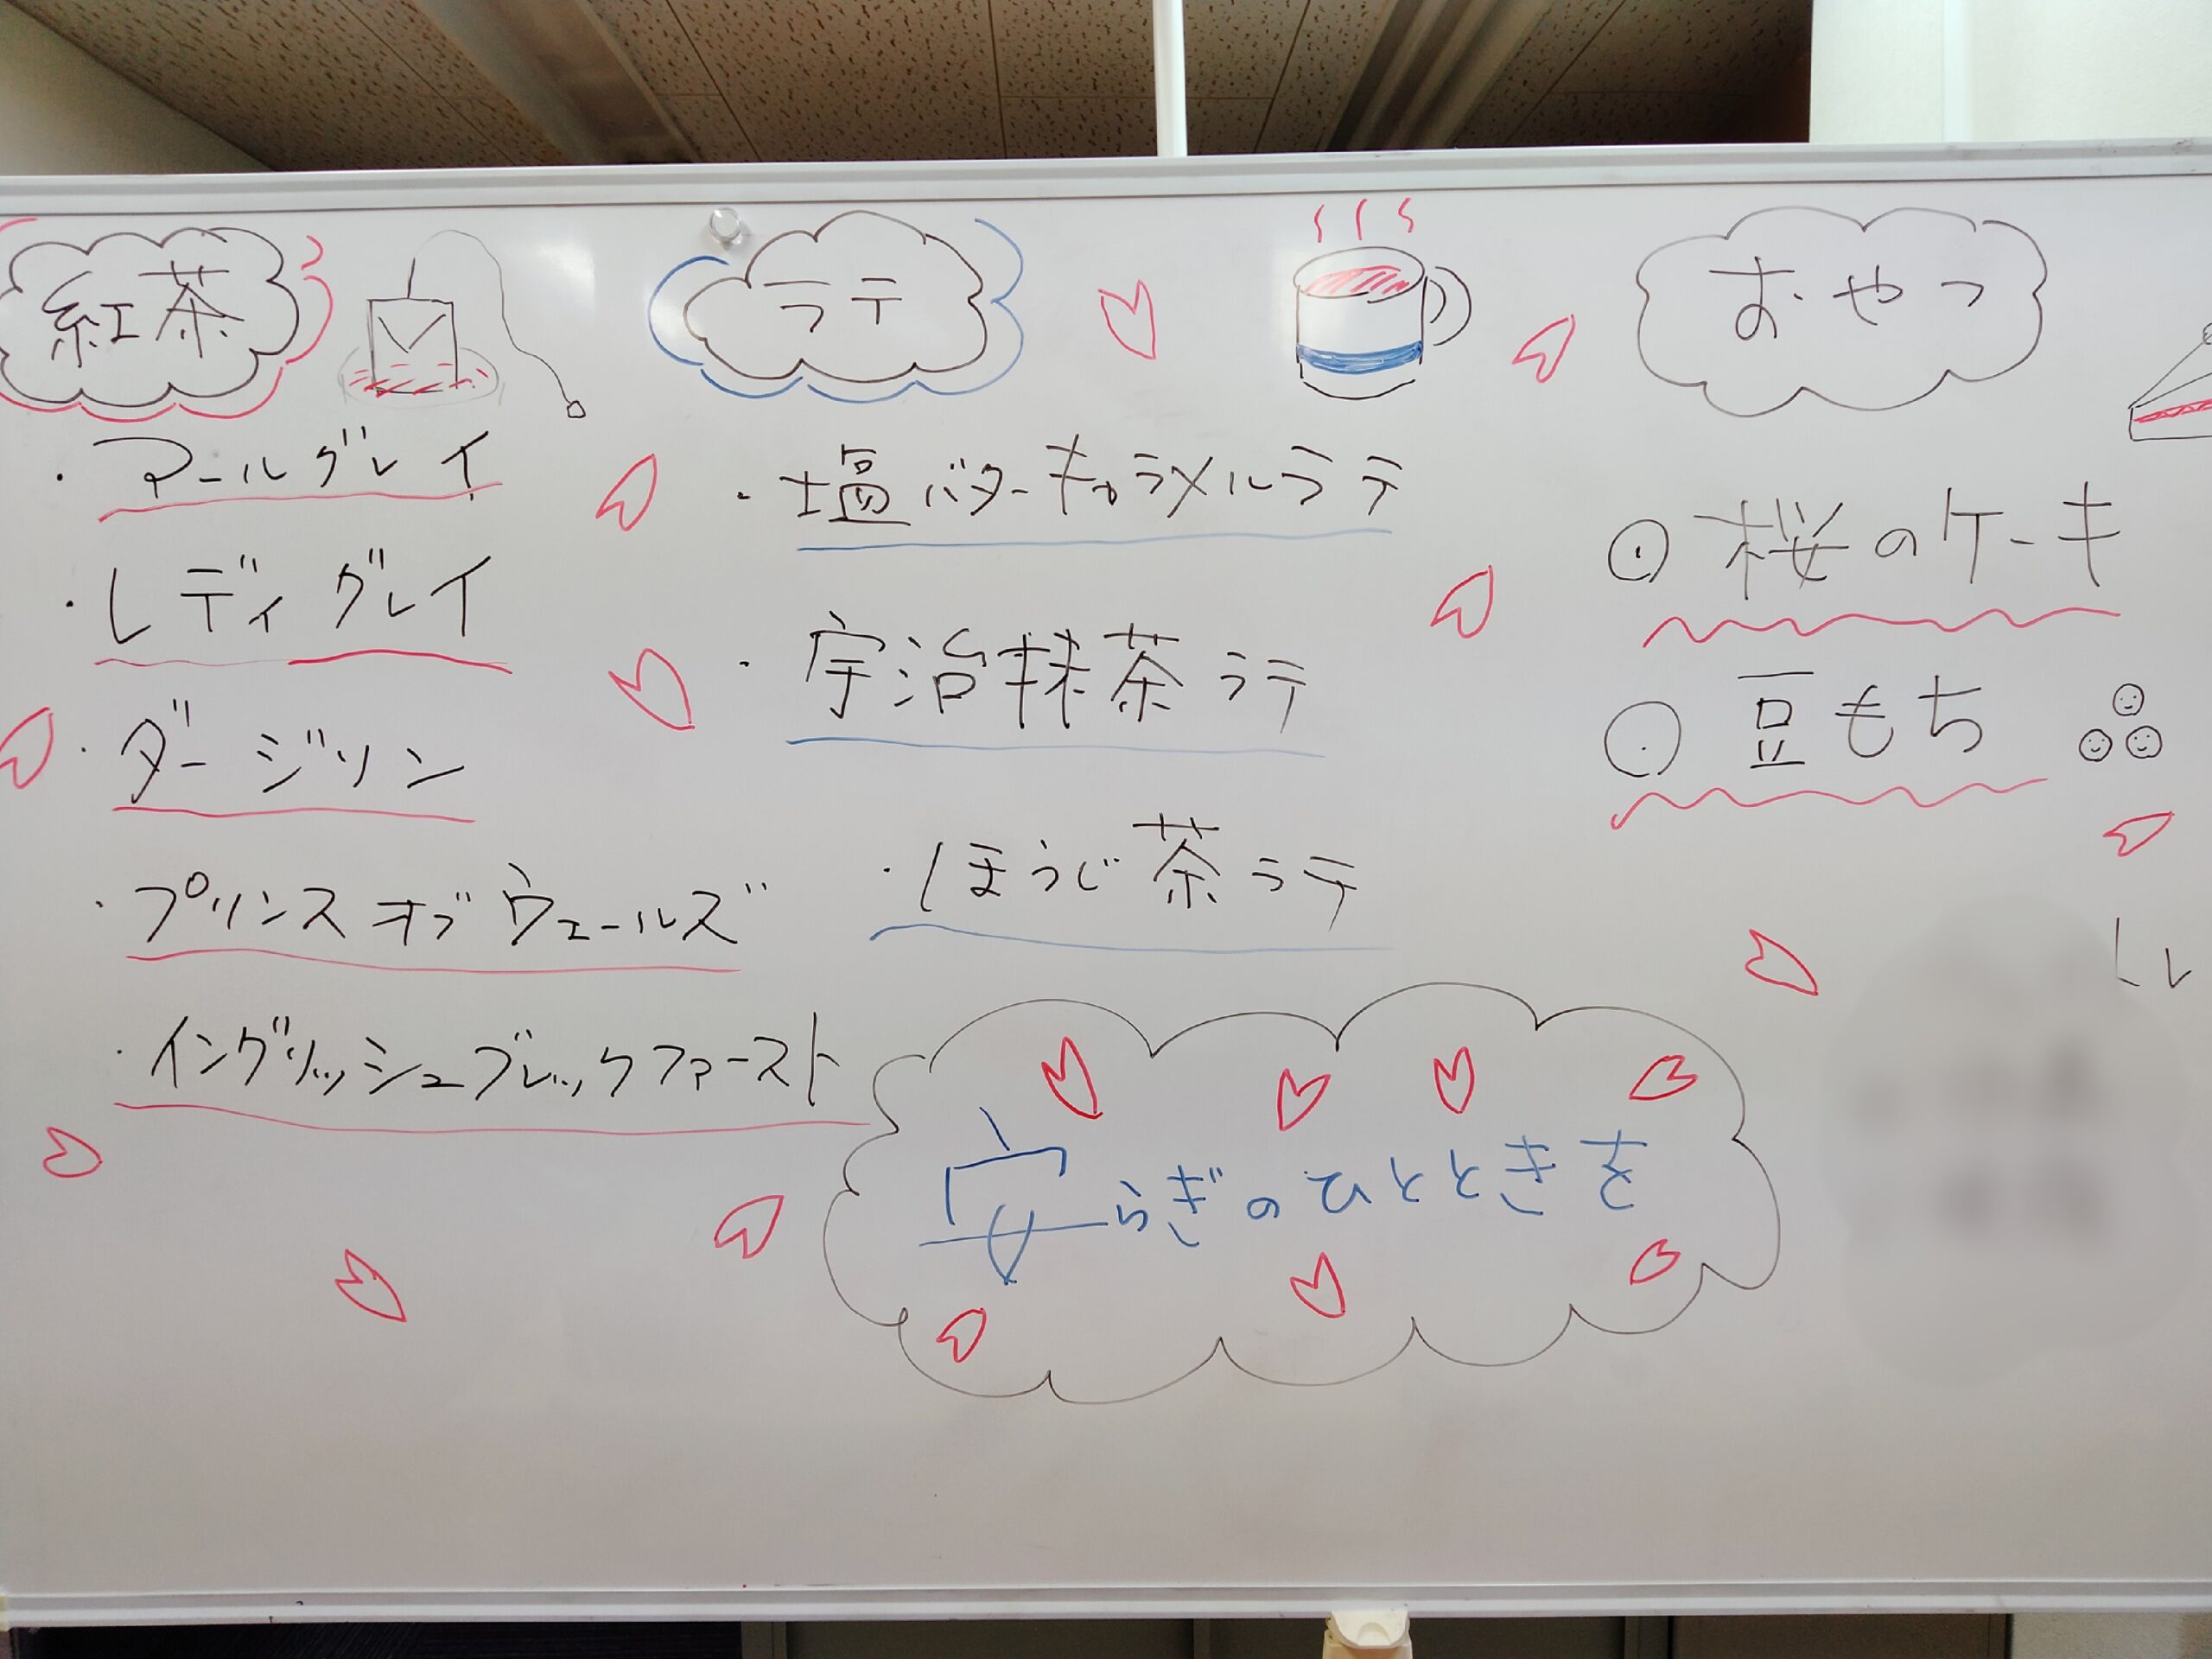 紅茶
・アールグレイ
・レディグレイ
・ダージリン
・プリンスオブウェールズ
・イングリッシュブレックファースト
ラテ
・塩バターキャラメルラテ
・宇治抹茶ラテ
・ほうじ茶ラテ
おやつ
桜のケーキ
豆もち
安らぎのひとときを